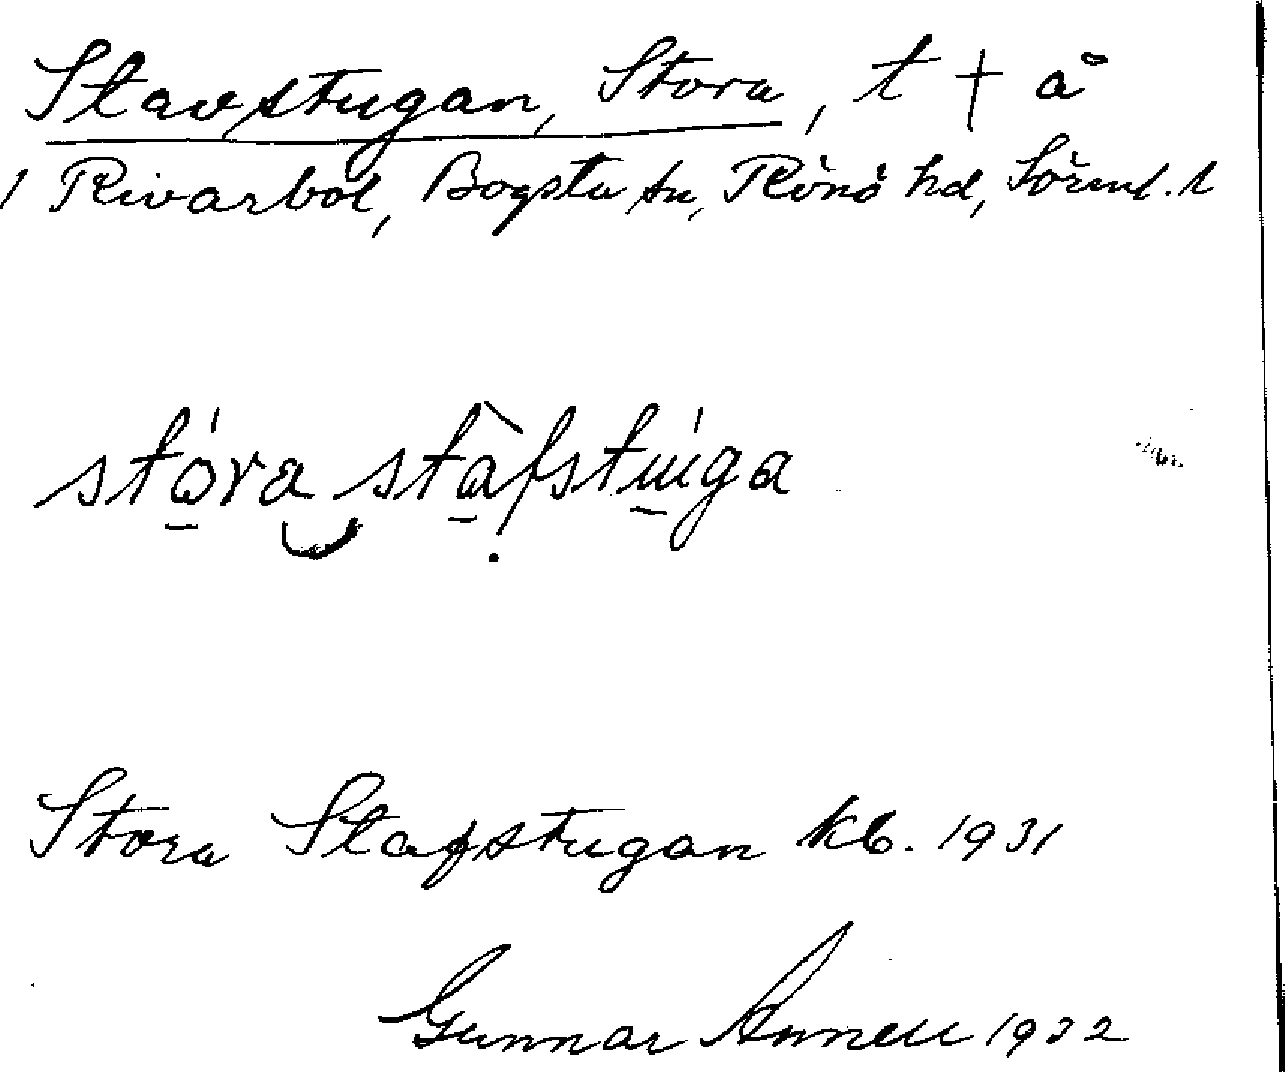 Stavstugan, Stora, t † å
/ Rivarbol, Bogsta sn, Rönö hd, Sörml. l
stóra stàfstúga
Stora Stafstugan kb. 1931
Gunnar Annell 1932